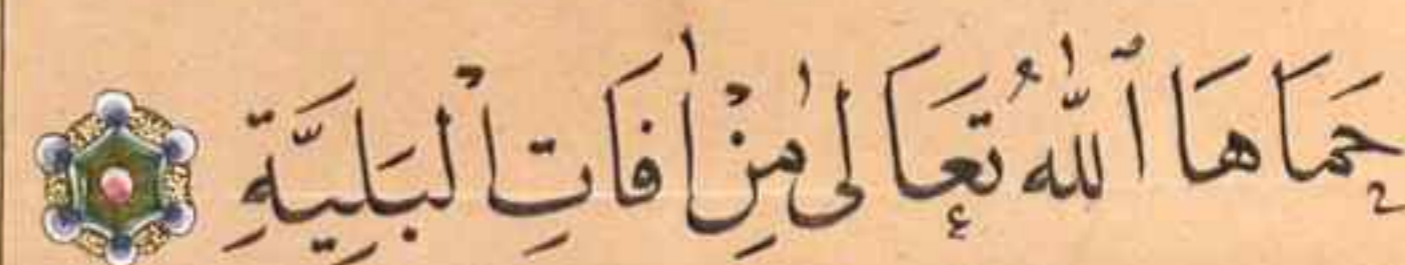 حَمَاهَا ٱللّٰهُ تَعَالىٰ مِنْ اٰفَاتِ الْبَلِيَّةِ